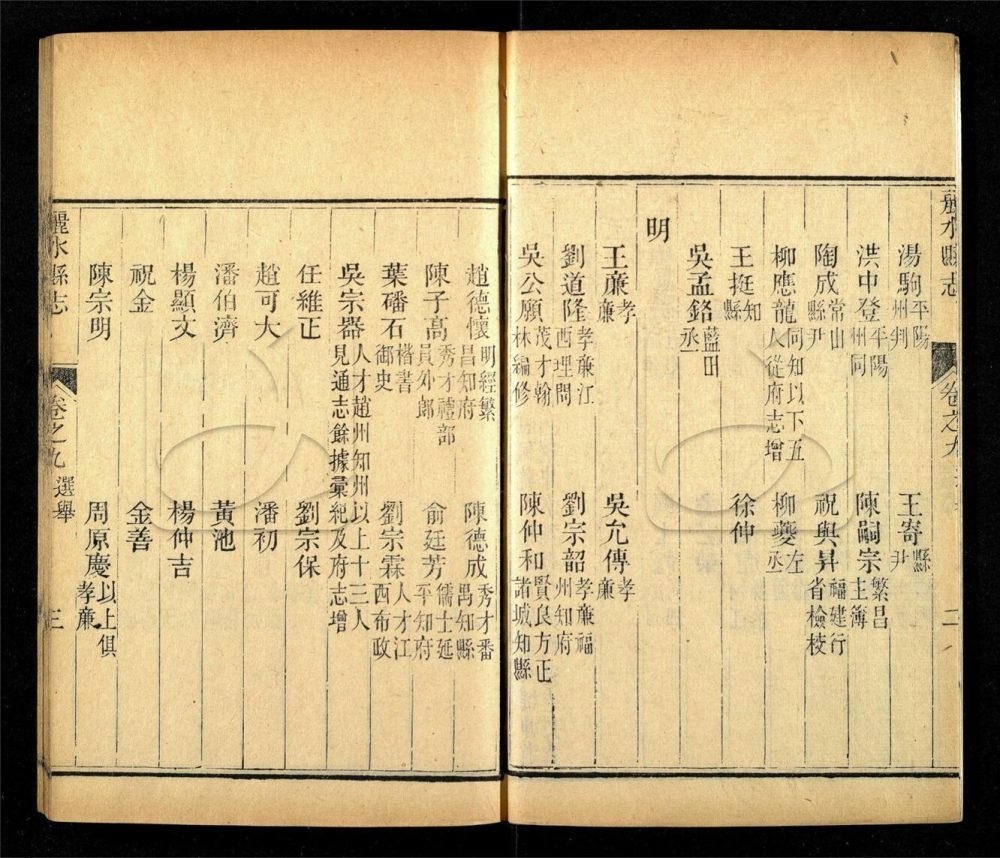 麗水縣志 卷之九 二
湯駒平陽州判 王寄縣尹
洪中登平陽州同 陳嗣宗繁昌主簿
陶成常山縣尹 祝與昇福建行省檢校
柳應龍同知以下五人從府志增 柳夔左丞
王挺知縣 徐仲
吳孟鉻藍田丞
明
王亷孝亷 吳允傳孝亷
劉道隆孝亷江西理問 劉宗韶孝亷福州知府
吳公願茂才翰林編修 陳仲和賢良方正諸城知縣
趙德懷明經繁昌知府 陳德成秀才番禺知縣
陳子高秀才禮部員外郎 俞廷芳儒士延平知府
葉磻石楷書御史 劉宗霖人才江西布政
吳宗器人才趙州知州以上十三人見通志餘據彙紀及府志增
任維正 劉宗保
趙可大 潘初
潘伯濟 黃池
楊顯文 楊仲吉
祝金 金善
陳宗明 周原慶以上俱孝亷
麗水縣志 卷之九 選舉 三